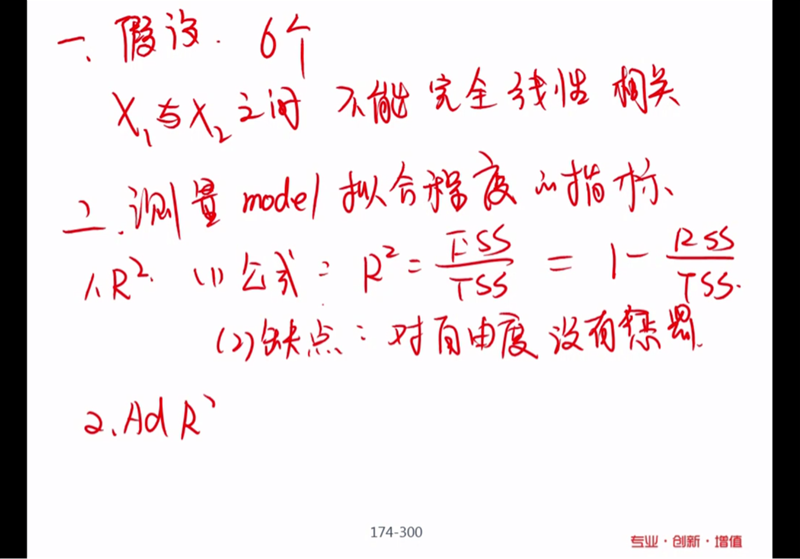 一、假设. 6个
X₁与X₂之间 不能 完全线性 相关
二.测量 model 拟合程度的指标、
1、R². (1) 公式: R² = ESS/TSS = 1 - RSS/TSS.
(2) 缺点: 对自由度 没有惩罚.
2. Ad R²
174-300
专业·创新·增值